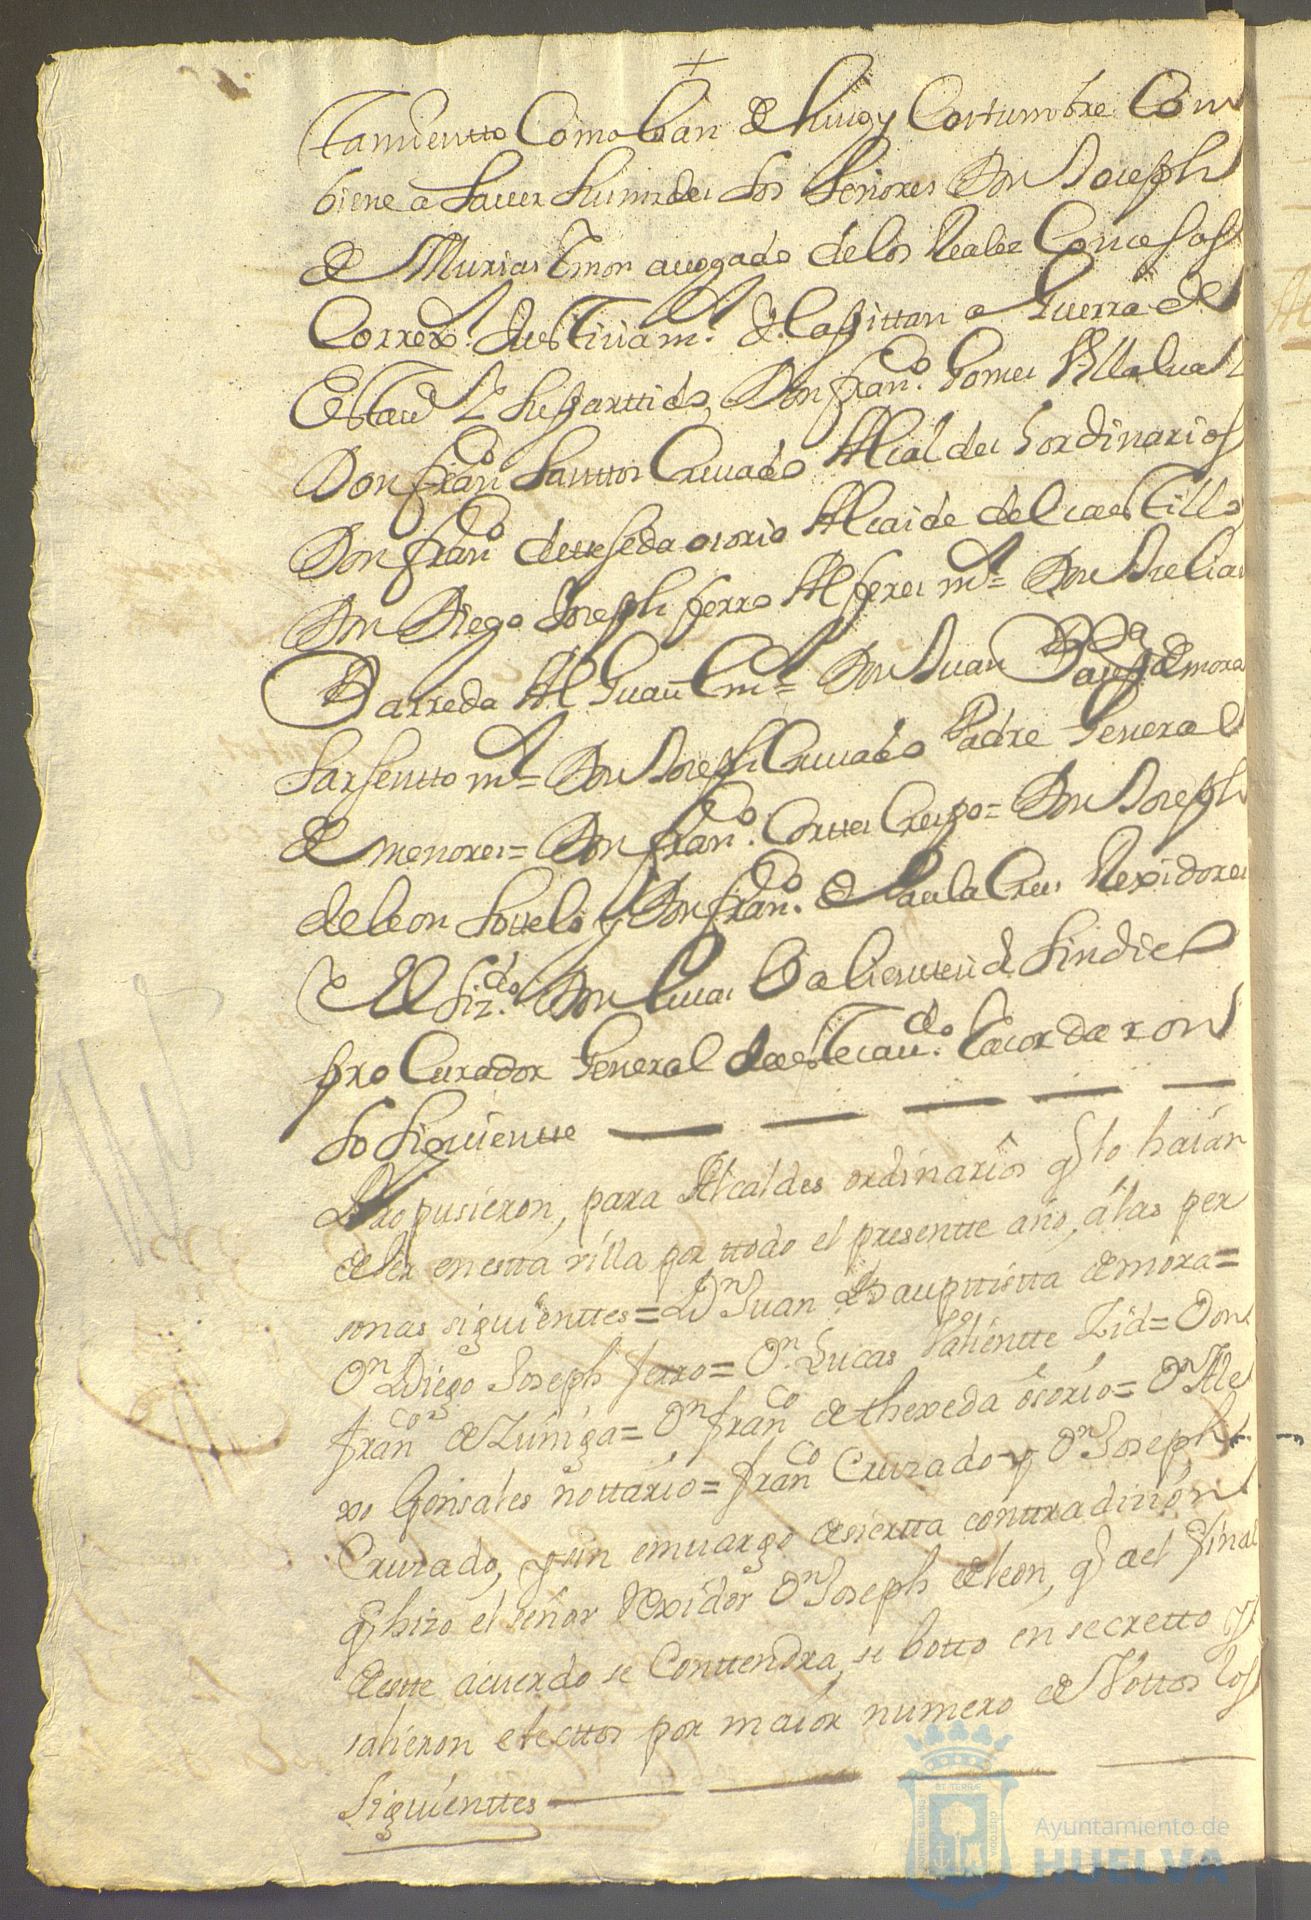 +
tamientto Como lo an de huso y Costumbre Con
biene a Sauer Sus mrdes Los Señores Don Joseph
de Murias Tmon auogado de los Reales Consejos
Correxor. Justicia mr. de Capittan a Guerra de
Esta va. Y Su parttido, Don franco. Gomes Villalua
Don franco Santtos Cruzado Alcaldes hordinarios
Don franco de texeda osorio Alcaide del castillo
Don Diego Joseph ferro Alferes mr = Don Julian
Barreda Alguaul mr = Don Juan Bapta de mora
Sarjentto mr = Don Joseph Cruzado Padre General
de menores = Don franco. Corttes Crespo = Don Joseph
de leon Sottelo y Don franco. de Paula Cres Rexidores
e El Lizdo. Don Lucas Balientte Sindico
pro Curador General de este caudo. Y acordaron
Lo Siguientte
Propusieron, para Alcaldes ordinarios q lo haian
de ser en estta villa por ttodo el presentte año, a las per
sonas siguienttes = Dn Juan Bauptistta de mora =
Dn Diego Joseph ferro = Dn. Lucas Valientte Lid = Don
francor de Zuniga = Dn franco de thexeda osorio = Dn Ale
xo Gonsales nottario = franco Cruzado y Dn Joseph
Cruzado, y sin embargo de sierta conttradizion
q hizo el señor Rexidor Dn Joseph de leon, q a el final
de este acuerdo se Conttendra, se botto en secretto y
salieron electtos por maior numero de Vottos los
Siguienttes
Ayuntamiento de
HUELVA